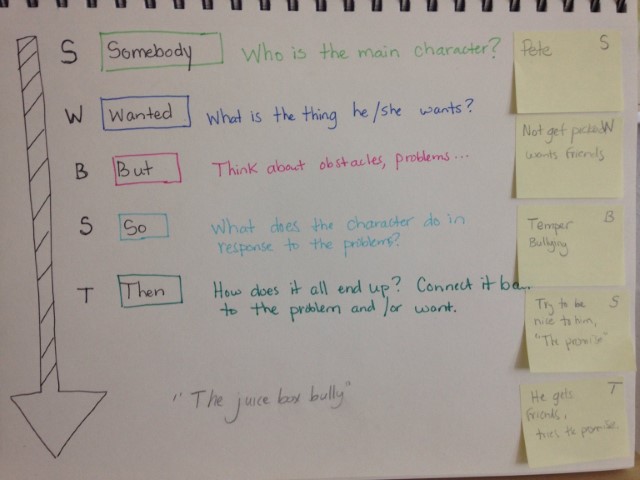 S Somebody Who is the main character?
W Wanted What is the thing he/she wants?
B But Think about obstacles, problems...
S So What does the character do in
response to the problems?
T Then How does it all end up? Connect it ba
to the problem and/or want.
"The juice box bully"
Pete S
Not get picked W
wants friends
Temper B
Bullying
Try to be S
nice to him,
"The promise"
He gets T
friends,
the promise.